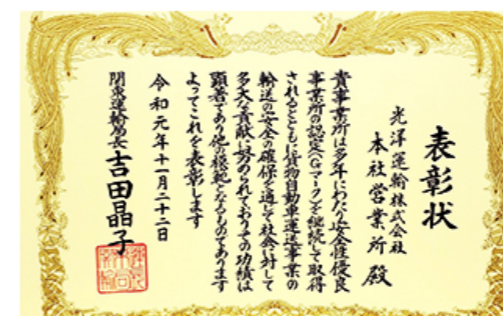 表彰状
光洋運輸株式会社
本社営業所 殿
貴事業所は多年にわたり安全性優良
事業所の認定(Gマーク)を継続して取得
されるとともに貨物自動車運送事業の
輸送の安全の確保を通じて社会に対して
多大な貢献に努められておりその功績は
顕著であり他の模範となるものであります
よってこれを表彰します
令和元年十一月二十二日
関東運輸局長 吉田晶子